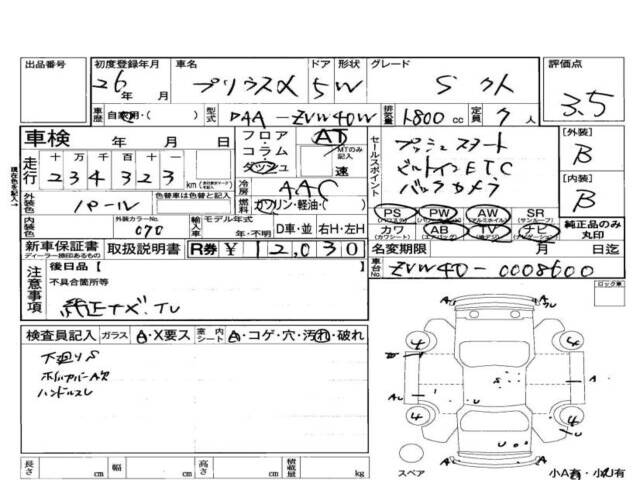 出品番号 初度登録年月 車名 ドア 形状 グレード 評価点
26年 月 プリウスα 5 W S 3.5
車歴 自家用・( ) 型式 DAA-ZVW40W 排気量 1800 cc 定員 7 人
車検 年 月 日
フロア・コラム・ダッシュ AT MTのみ記入 速
セールスポイント
プッシュスタート
ビルトインETC
バックカメラ
[外装] B
[内装] B
走行 十万 万 千 百 十 一
234323 km
冷房 AAC
燃料 ガソリン・軽油・( )
外装色 パール 色替車は色替と記入
内装色 外装カラーNo. 070
輸入車 モデル年式 年・不明 D車・並 右H・左H
PS PW AW SR
(パワステ) (パワーウインド) (アルミホイル) (サンルーフ)
カワ AB TV ナビ
(カワシート) (エアバッグ) (地デジ)
純正品のみ丸印
新車保証書 取扱説明書 R券 ¥ 12,030
ディーラー捺印あるもの
名変期限 月 日迄
車台No. ZVW40-0008600
注意事項
後日品【
不具合箇所等
純正ナビ.TV
ロック車
検査員記入 ガラス A・X要ス 室内シート A・コゲ・穴・汚れ・破れ
下廻りS
ハンドルスレ
長さ cm 幅 cm 高さ cm 積載量 kg
スペア 小A有・小U有